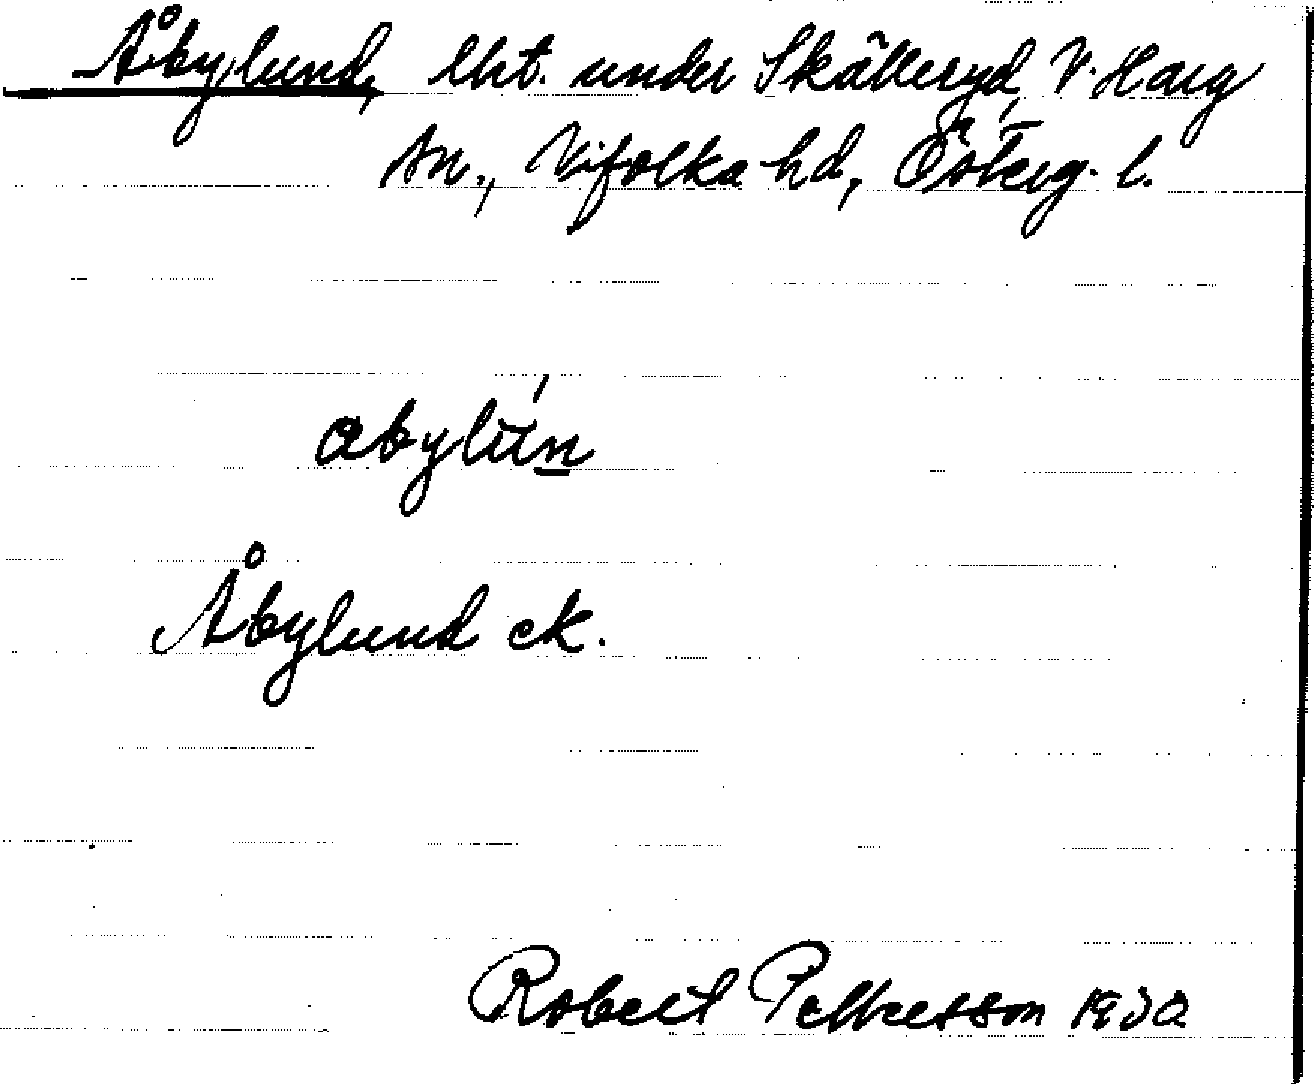 Åbylund, lht. under Skälleryd, V. Harg
sn., Vifolka hd, Östergг. l.
abylún
Åbylund ek.
Robert Pettersson 1930